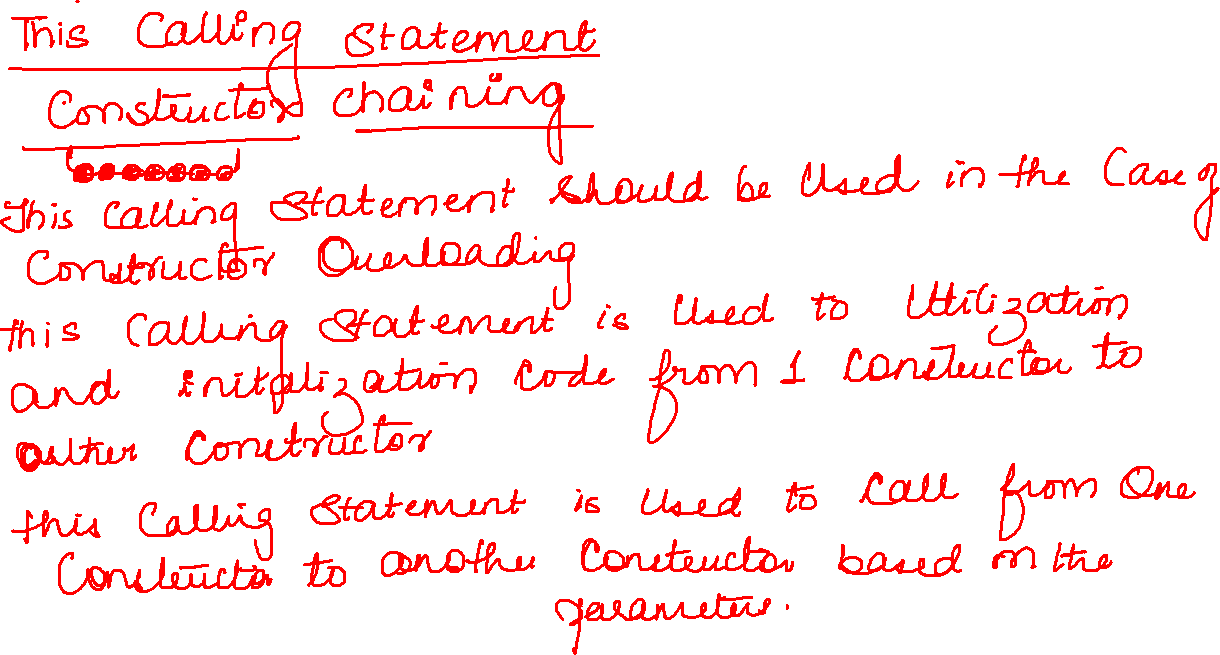 This Calling Statement
Constructor chaining
This calling Statement should be Used in the Case of
Constructor Overloading
this Calling Statement is Used to Utilization
and initalization code from 1 Constructor to
Constructor
this Calling Statement is Used to Call from One
Constructor to another Constructor based on the
parameters.